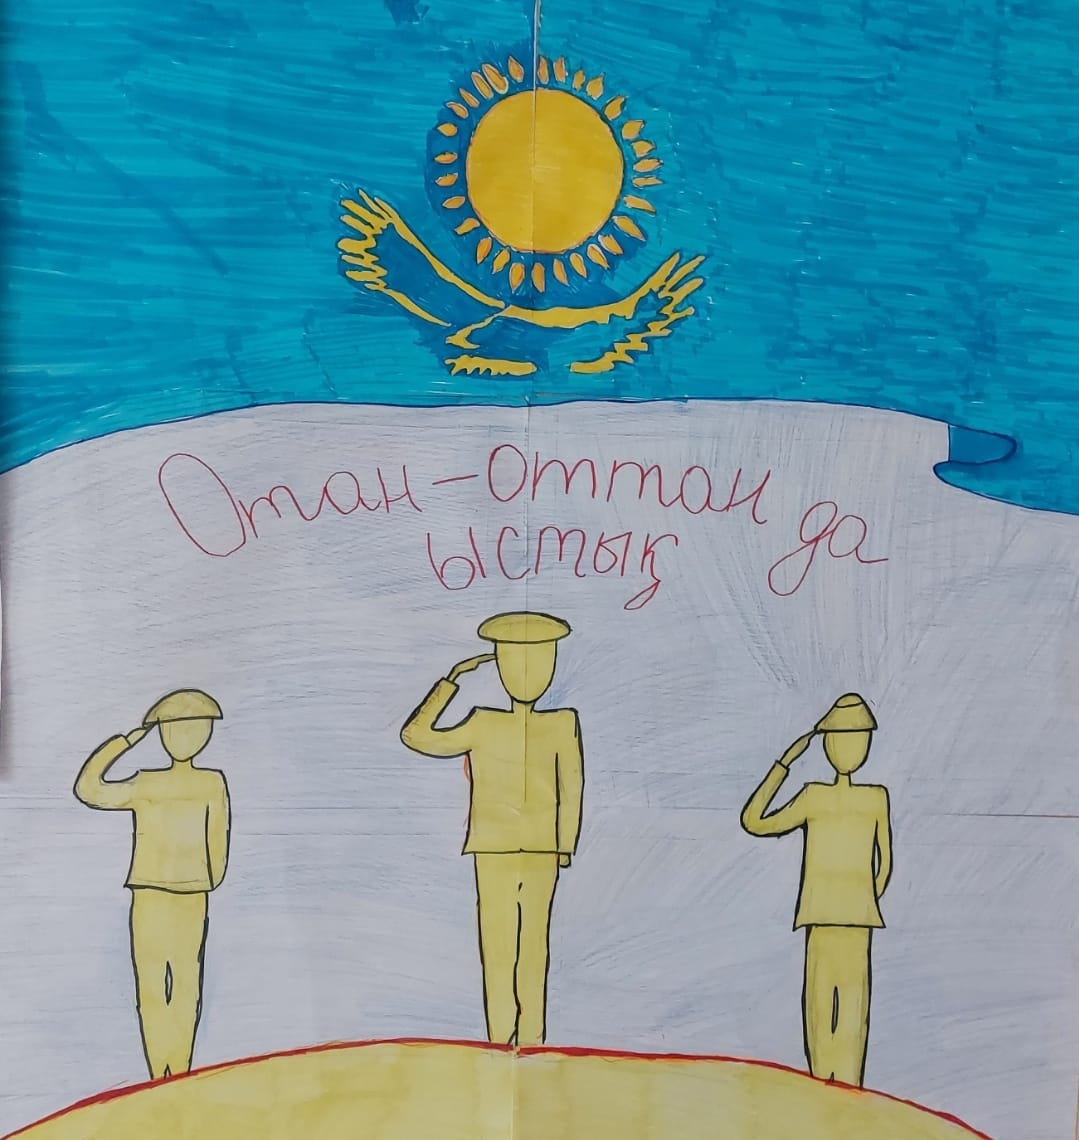 Отан-оттан да
ыстық